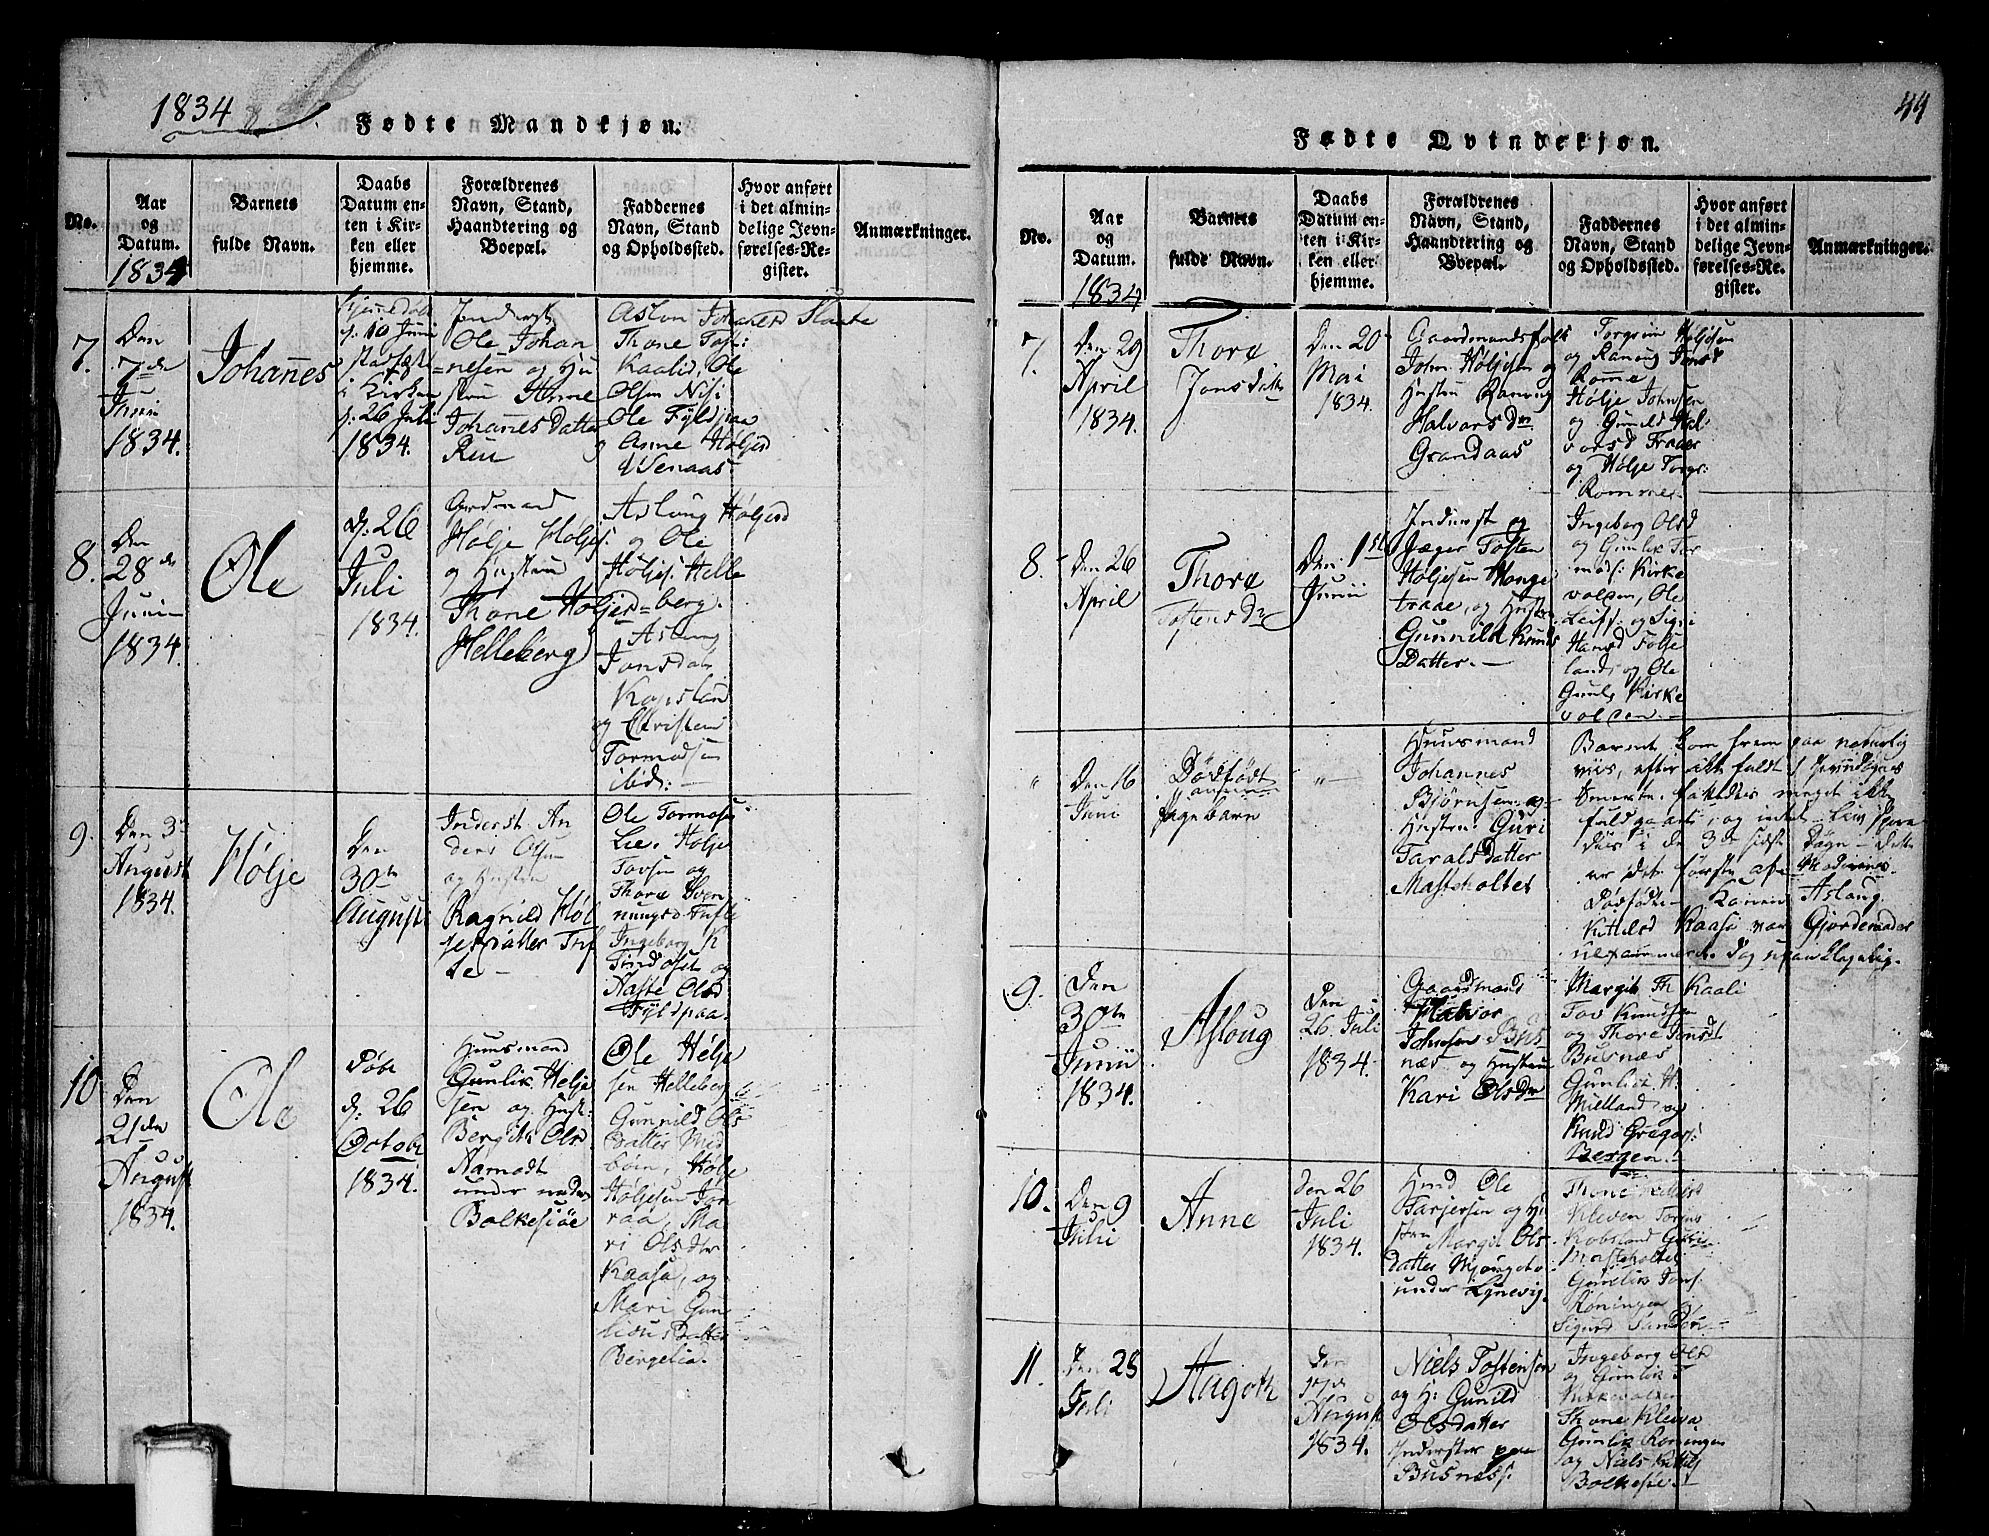 1834
Fødte Mandkjøn.
No.
Aar
og
Datum.
1834
Barnets
fulde Navn.
Daabs
Datum en-
ten i Kir-
ken eller
hjemme.
Forældrenes
Navn, Stand,
Haandtering og
Boepæl.
Faddernes
Navn, Stand
og Opholdssted.
Hvor anført
i det almin-
delige Jevn-
førelses-Re-
gister.
Anmærkninger.
7.
Den
7de
Juni
1834.
Johannes
Hjemmedøbt
d. 10 Juni
stadfæst
i Kirken
d. 26 Juli
1834.
Inderst
Ole Johan
=nesen og Hu
stru Anne
Johannes Datter
Ruu
Aslou Johansd Slaate
Thone Tof:
Kaalid, Ole
Olsen Nisi
Ole Fyldpaa
Anne Høljed
Wenaas
8.
Den
28de
Junii
1834.
Ole
d. 26
Juli
1834.
Gardmand
Hølje Høljes.
og Hustru
Thone Høljed
Helleberg
Asloug Høljed
og Ole
Høljes. Helle
=berg.
Aslaug
Jonsdatr
Kopsland
og Christen
Tormodsen
ibid: –
9.
Den 3de
August
1834.
Hølje
Den
30te
August.
Inderst An
ders Olsen
og Hustru
Ragnild Høl
jesdatter Tuf
te –
Ole Tormos.
Lie. Hølje
Tovsen og
Thore
Tufte
Ingeborg K
Tindoset og
Naste Olsd
Fyldpaa.
10
Den
21de
August
1834.
Ole
Døbt
d. 26
October
1834.
Huusmand
Gunlik Hølje
sen og Hust:
Bergit Olsd
Aamodt
under nedre
Bolkesiøe
Ole Hølje
sen Helleberg
Gunnild Ols
Datter Mid
bøen, Hølje
Høljesen Jon
raa, Ma
ri Olsdtr
Kaasa, og
Mari Gun
Datter
Bergelid.
44
Fødte Qvindekjøn.
No.
Aar
og
Datum.
1834
Barnets
fulde Navn.
Daabs
Datum en-
ten i Kir-
ken eller
hjemme.
Forældrenes
Navn, Stand,
Haandtering og
Boepæl.
Faddernes
Navn, Stand
og Opholdssted.
Hvor anført
i det almin-
delige Jevn-
førelses-Re-
gister.
Anmærkninger.
7.
Den 29
April
1834.
Thore
Jonsdattr
Den 20
Mai
1834.
Gaardmandsfolk
John Høljesen og
Hustru Ranvug
Halvorsdtr
Grandaas
Torgrim Høljesen
og Ranvug Jonsd
Romme
Hølje Johnsen
og Gunild Hal
vorsd Traaer
og Hølje Torgr:
Romme.
8.
Den 26
April
Thore
Tostensdr
Den 1st
Junii
Inderst og
Jæger Tosten
Høljesen Honge
traae, og Hustru
Gunnild Knuds
Datter. –
Ingeborg Olsd
og Gunlik Tor
mods: Kirke
volden, Ole
Leiff: og Sigri
Hansd Følse
land, og Ole
Gunl, Kirke
volden. –
"
Den 16
Juni
Dødfødt
Pigebarn
"–
Huusmand
Johannes
Bjørnsen og
Hustru Guri
Taralsdatter
Masteholtet
Barnet kom frem paa naturlig
viis, efter
Smerte.
fuldgaaet; og intet Liv spore
des i de 3de sidste Døgn – Dette
er det første af Moderens
Dødfødte – Konen Aslaug
Kittelsd Kaasa var Gjordemoder
uexamineret. dog upaaklagelig.
9.
Den
30te
Junii
1834.
Asloug
Den
26 Juli
1834.
Gaardmand
Halvor
Johnsen Bus
næs og Hustru
Kari Olsdtr
Margit Th Kaali
Tov Knudsen
og Thore Jonsdt
Busnæs
Gunlik H.
Midland, og
Knud Gregors.
Bergen.
10.
Den 9
Juli
Anne
Den 26
Juli
1834.
Hmd Ole
Tarjersen og Hu
stru Margit Ols
datter Mjøngebo
under Lynevig.
Thone
Kleven Torgus
Kobsland Guri
Masteholtet
Gunlik Jons.
Røningen
Sigurd
11.
Den 28
Juli
Aagoth
Den
17de
August
1834.
Niels Tostensøn
og H: Gunild
Olsdatter
Inderster paa
Busness:
Ingeborg Olsd
og Gunlik T
Kirkevolden
Thone Kleiva
Gunlik Roningen
og Niels
Bolkesiø. –